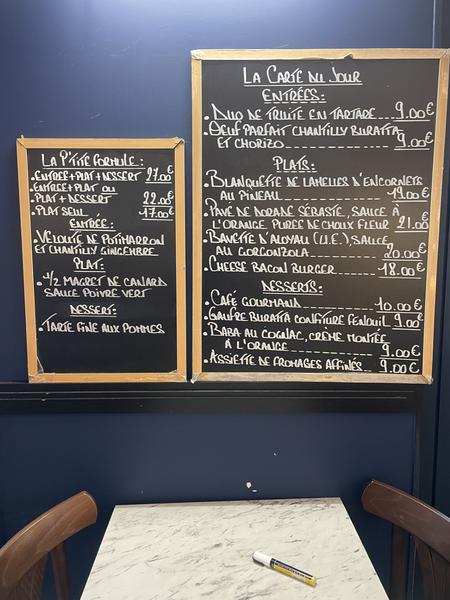 LA P'TITE FORMULE:
.ENTRÉE+PLAT+DESSERT 27.00€
.ENTRÉE+PLAT OU
PLAT+DESSERT 22.00€
.PLAT SEUL 17.00€
ENTRÉE:
.VELOUTÉ DE POTIMARRON
ET CHANTILLY GINGEMBRE
PLAT:
.1/2 MAGRET DE CANARD
SAUCE POIVRE VERT
DESSERT:
.TARTE FINE AUX POMMES
LA CARTE DU JOUR
ENTRÉES:
.DUO DE TRUITE EN TARTARE... 9.00€
.OEUF PARFAIT CHANTILLY BURATTA
ET CHORIZO 9.00€
PLATS:
.BLANQUETTE DE LAMELLES D'ENCORNETS
AU PINEAU 19.00€
.PAVÉ DE DORADE SÉBASTE, SAUCE À
L'ORANGE, PURÉE DE CHOUX FLEUR 21.00€
.BAVETTE D'ALOYAU (U.E.), SAUCE
AU GORGONZOLA 20.00€
.CHEESE BACON BURGER 18.00€
DESSERTS:
.CAFÉ GOURMAND 10.00€
.GAUFRE BURATTA CONFITURE FENOUIL 9.00€
.BABA AU COGNAC, CRÈME MONTÉE
À L'ORANGE 9.00€
.ASSIETTE DE FROMAGES AFFINÉS 9.00€